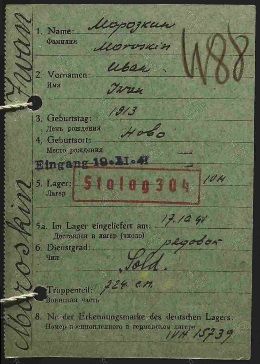 Moroskin Iwan
1. Name: Морозкин
Фамилия Moroskin
W88
2. Vornamen: Иван
Имя Iwan
3. Geburtstag: 1913
День рождения
4. Geburtsort: Ново
Место рождения
Eingang 19.11.41
5. Lager: Stalag 304 IV H
Лагерь
5a. Im Lager eingeliefert am: 17.10.41
Доставлен в лагерь (число)
6. Dienstgrad: рядовой
Чин Sold.
7. Truppenteil: 724 с.п.
Воинская часть
8. Nr der Erkennungsmarke des deutschen Lagers:
Номер военнопленного в германском лагере
IV H 15739